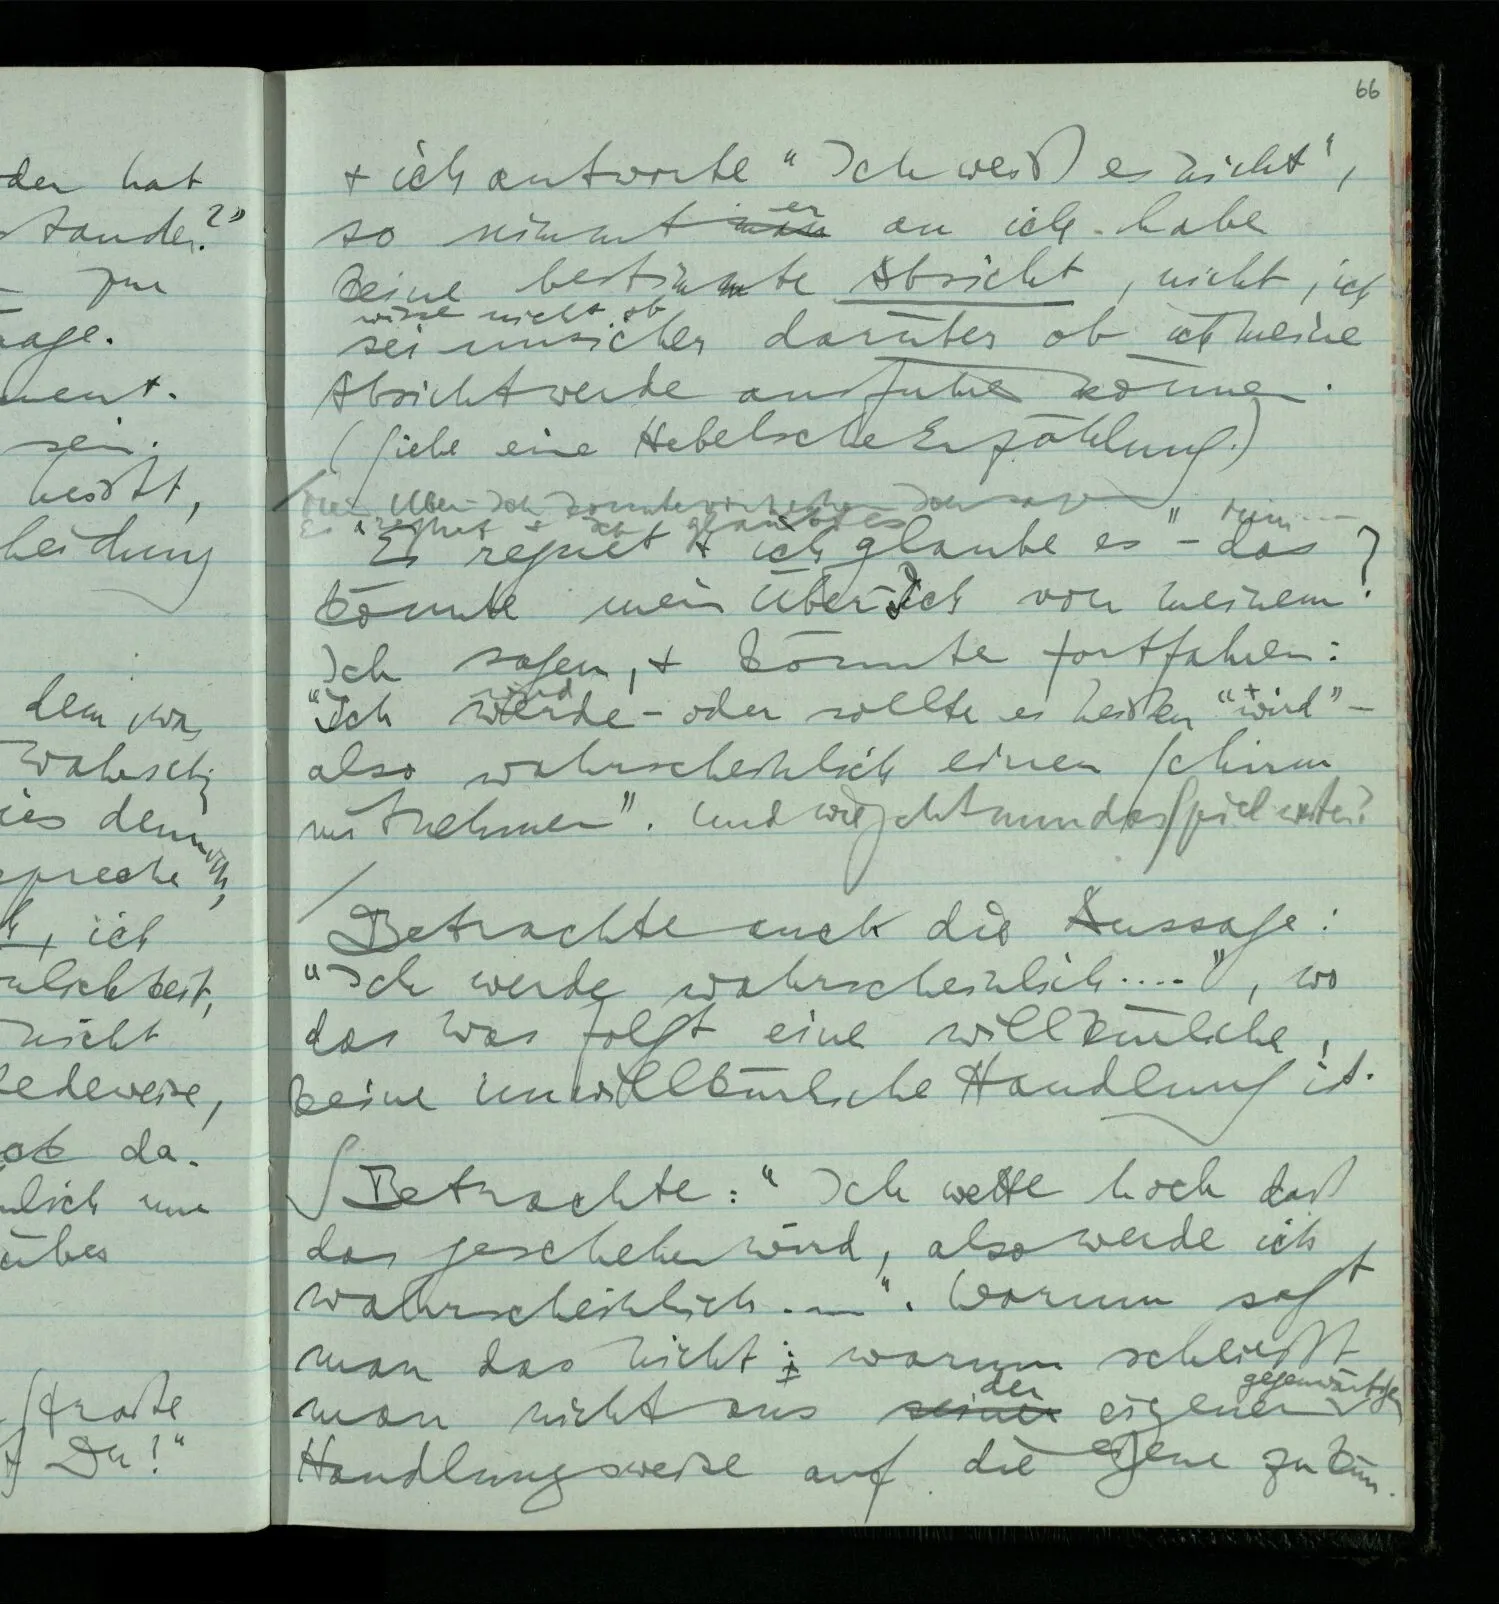 den hat
standen?"
zur
rage.
ment.
sein.
heißt,
heidung
dem, was
wahrsch
ies dem
spreche
ich
nlichkeit,
nicht
edeweise,
da.
nlich nur
über
Straße
Du!"
66
+ ich antworte "Ich weiß es nicht",
so nimmt man er an ich habe
keine bestimmte Absicht, nicht, ich
wisse nicht ob
sei unsicher darüber ob ich meine
Absicht werde ausführen können.
(Siehe eine Hebelsche Erzählung.)
Mein Über-Ich könnte von meinem Ich sagen
Es regnet + ich glaubt es
"Es regnet + ich glaube es" – das
könnte mein Über-Ich von meinem ?
Ich sagen, + könnte fortfahren:
wird
"Ich werde – oder sollte es heißen "wird" –
also wahrscheinlich einen Schirm
mitnehmen". Und wie geht nun das Spiel weiter?
/ Betrachte auch die Aussage:
"Ich werde wahrscheinlich....", wo
das was folgt eine willkürliche,
keine unwillkürliche Handlung ist.
∫ Betrachte: "Ich wette hoch daß
das geschehen wird, also werde ich
wahrscheinlich ...". Warum sagt
man das nicht; warum schließt
der gegenwärtigen
man nicht aus seiner eigenen
Handlungsweise auf die eigene zukün-